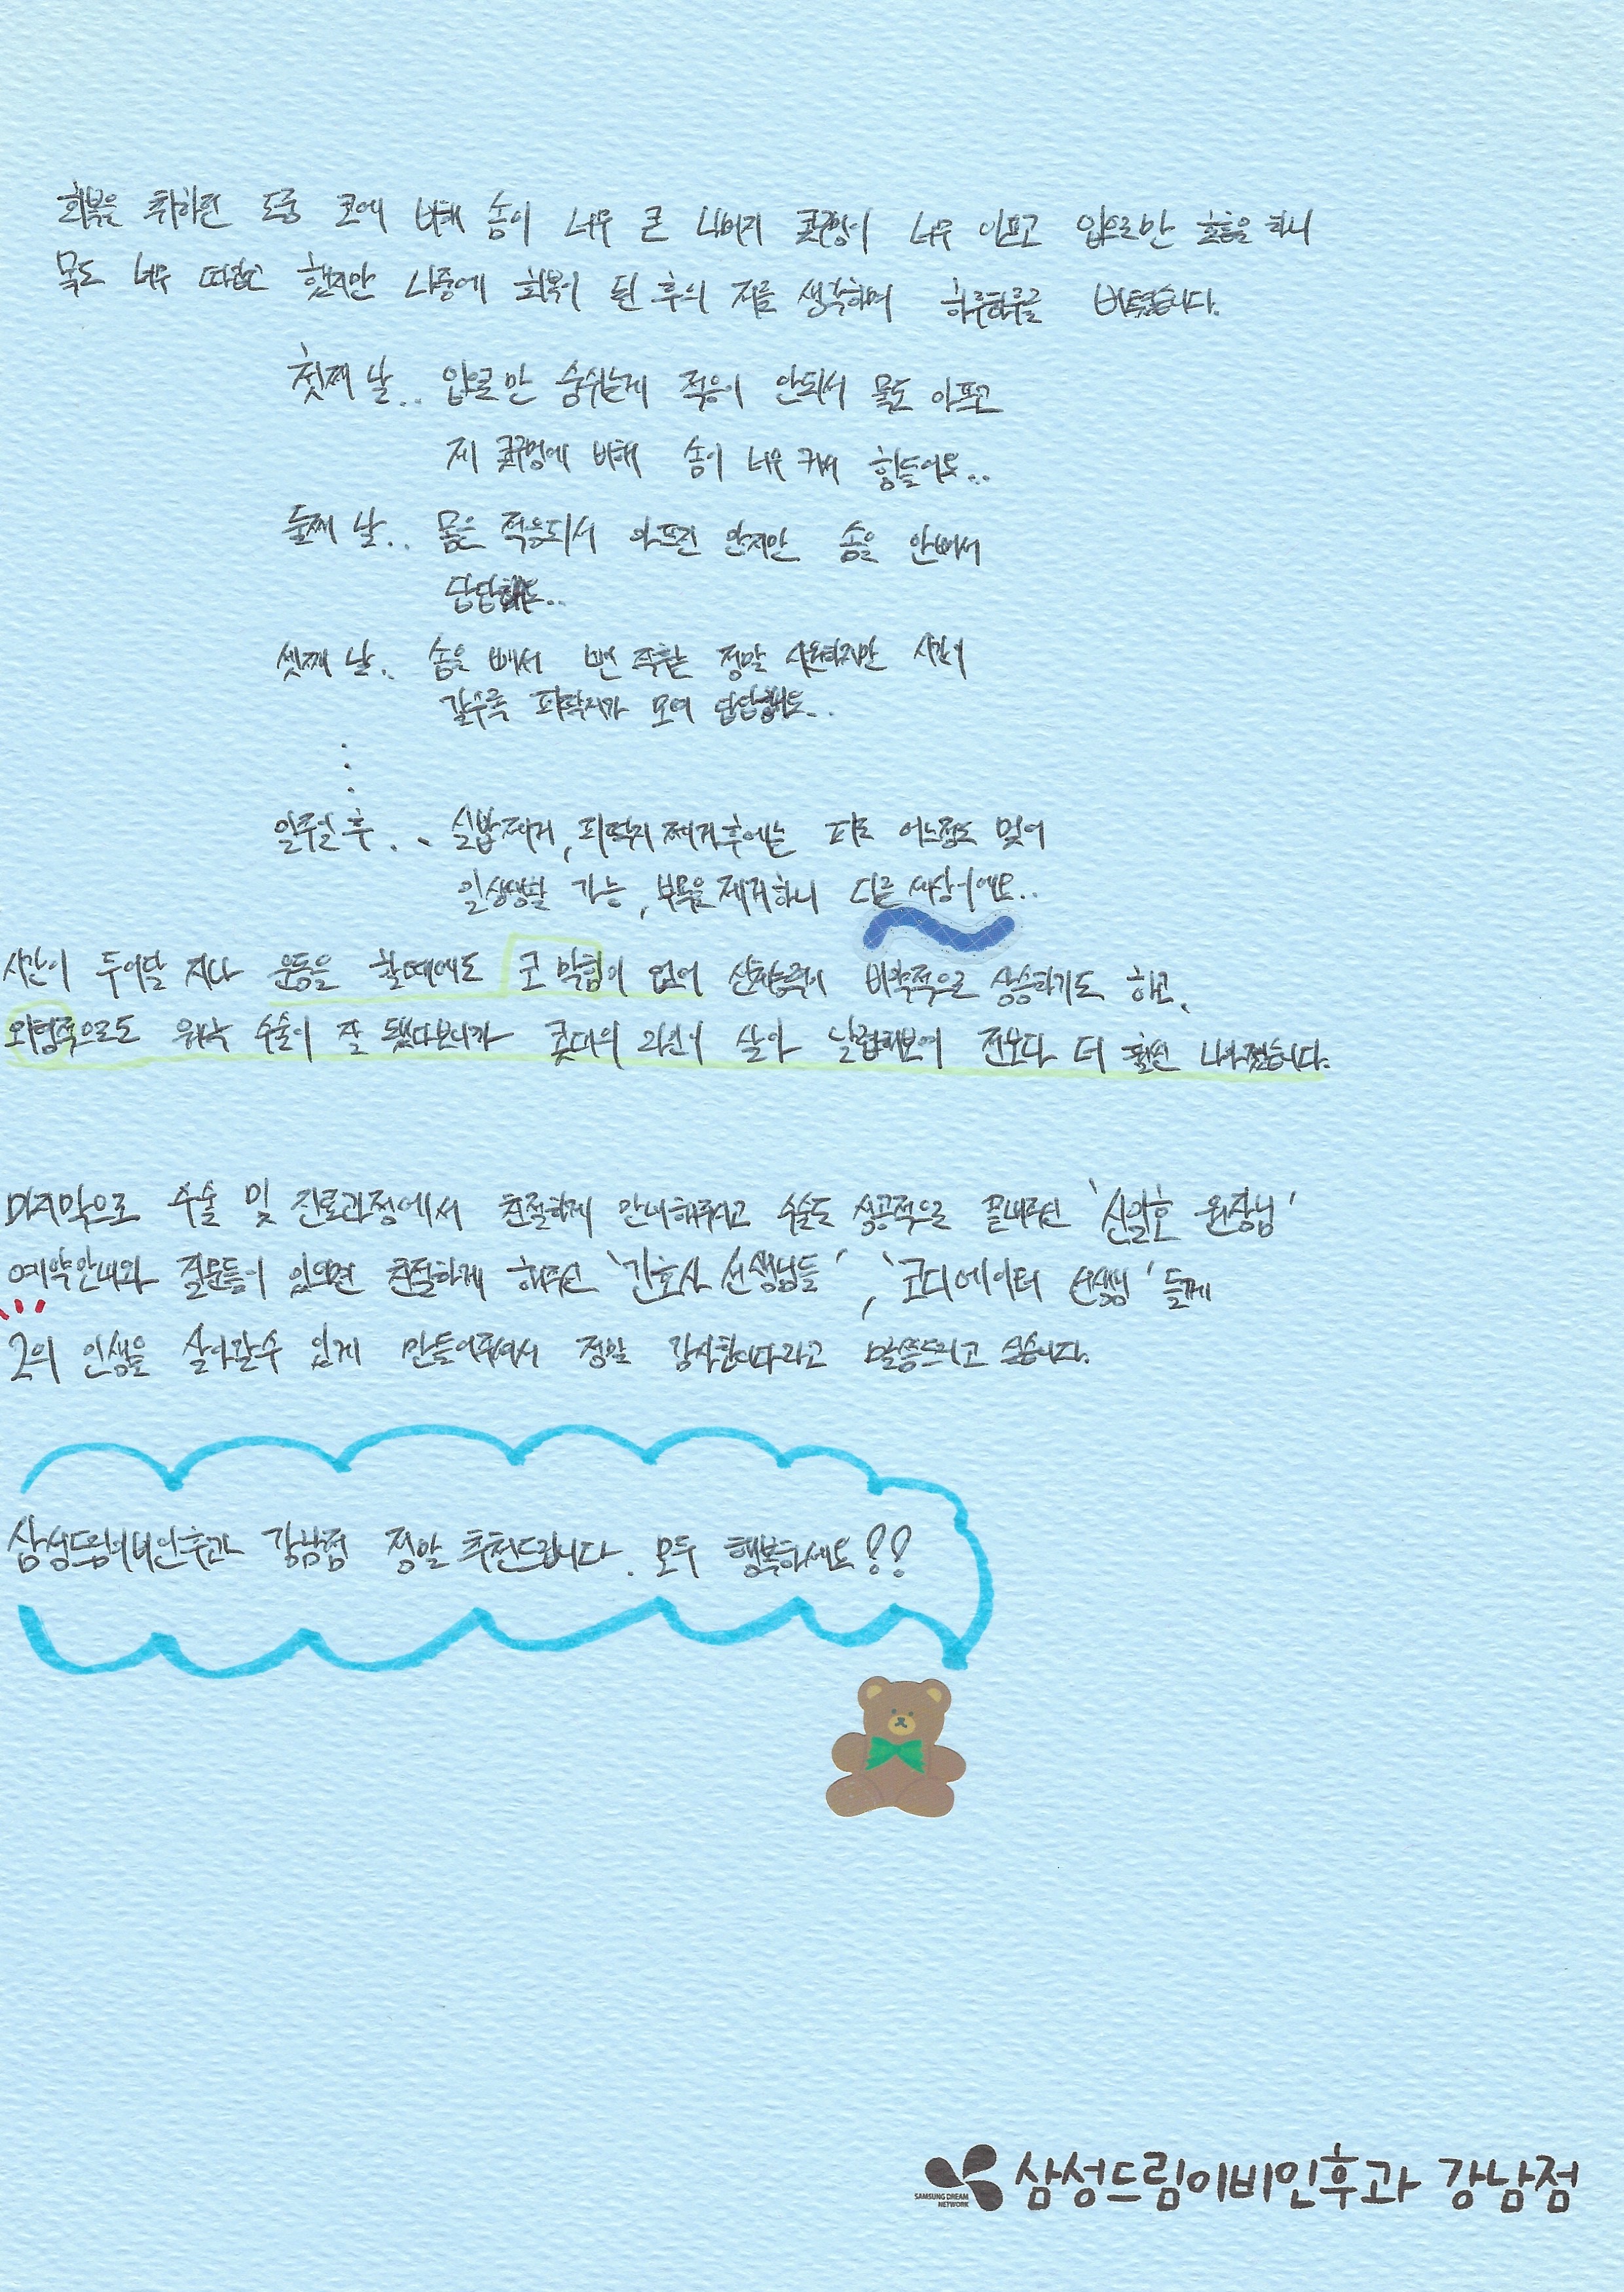 회복을 취하던 도중 코에 비해 솜이 너무 큰 나머지 콧구멍이 너무 아프고 입으로만 호흡을 하니
목도 너무 따갑고 했지만 나중에 회복이 된 후의 저를 생각하며 하루하루를 버텼습니다.
첫째 날.. 입으로만 숨쉬는게 적응이 안되서 목도 아프고
제 콧구멍에 비해 솜이 너무 커서 힘들어요..
둘째 날.. 몸은 적응되서 아프진 않지만 솜을 안빼서
답답해요..
셋째 날.. 솜을 빼서 뺀 직후는 정말 시원하지만 시간이
갈수록 피딱지가 모여 답답해요..
일주일 후.. 실밥제거, 피딱지 제거후에는 피도 어느정도 멎어
일상생활 가능, 부목을 제거하니 다른 세상이에요..
시간이 두어달 지나 운동을 할때에도 코 막힘이 없어 심폐능력이 비약적으로 상승하기도 하고,
외형적으로도 워낙 수술이 잘 됐다보니까 콧대의 라인이 살아 날렵해보여 전보다 더 훨씬 나아졌습니다.
마지막으로 수술 및 진료과정에서 친절하게 안내해주시고 수술도 성공적으로 끝내주신 '신일호 원장님'
예약안내와 질문들이 있으면 친절하게 해주신 '간호사 선생님들', '코디네이터 선생님'들께
2의 인생을 살아갈수 있게 만들어주셔서 정말 감사합니다라고 말씀드리고 싶습니다.
삼성드림이비인후과 강남점 정말 추천드립니다. 모두 행복하세요!!
SAMSUNG DREAM NETWORK
삼성드림이비인후과 강남점